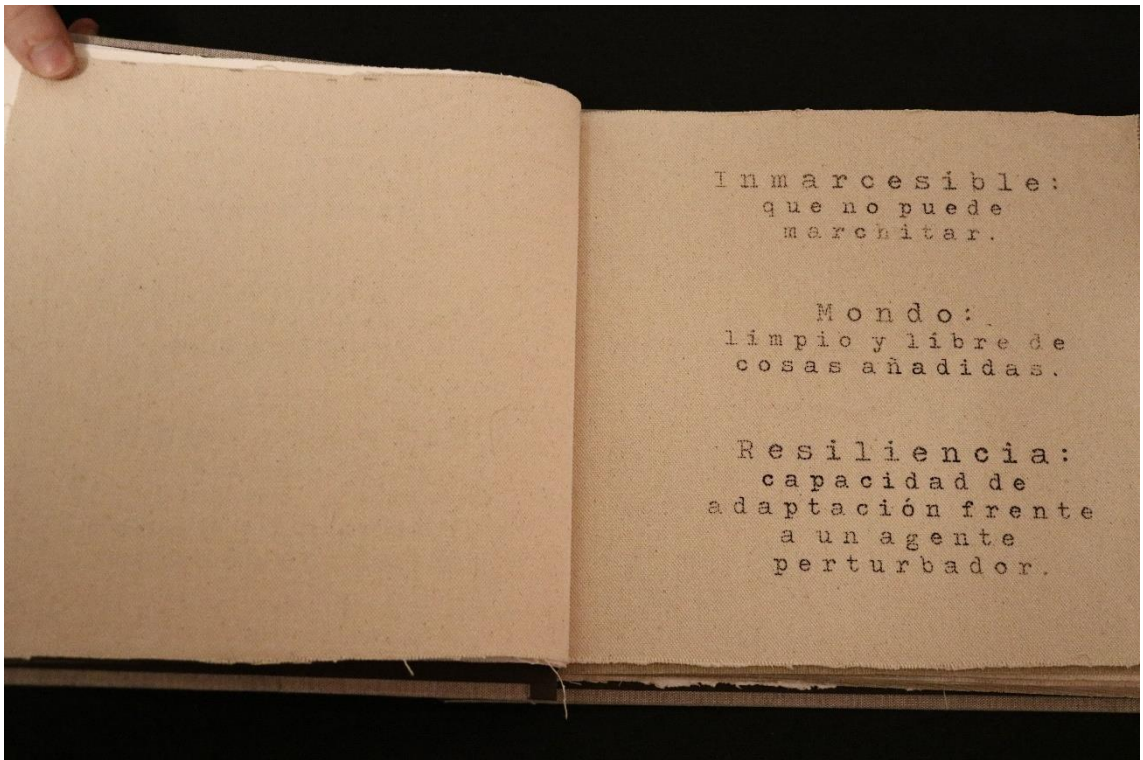 Inmarcesible:
que no puede
marchitar.
Mondo:
limpio y libre de
cosas añadidas.
Resiliencia:
capacidad de
adaptación frente
a un agente
perturbador.